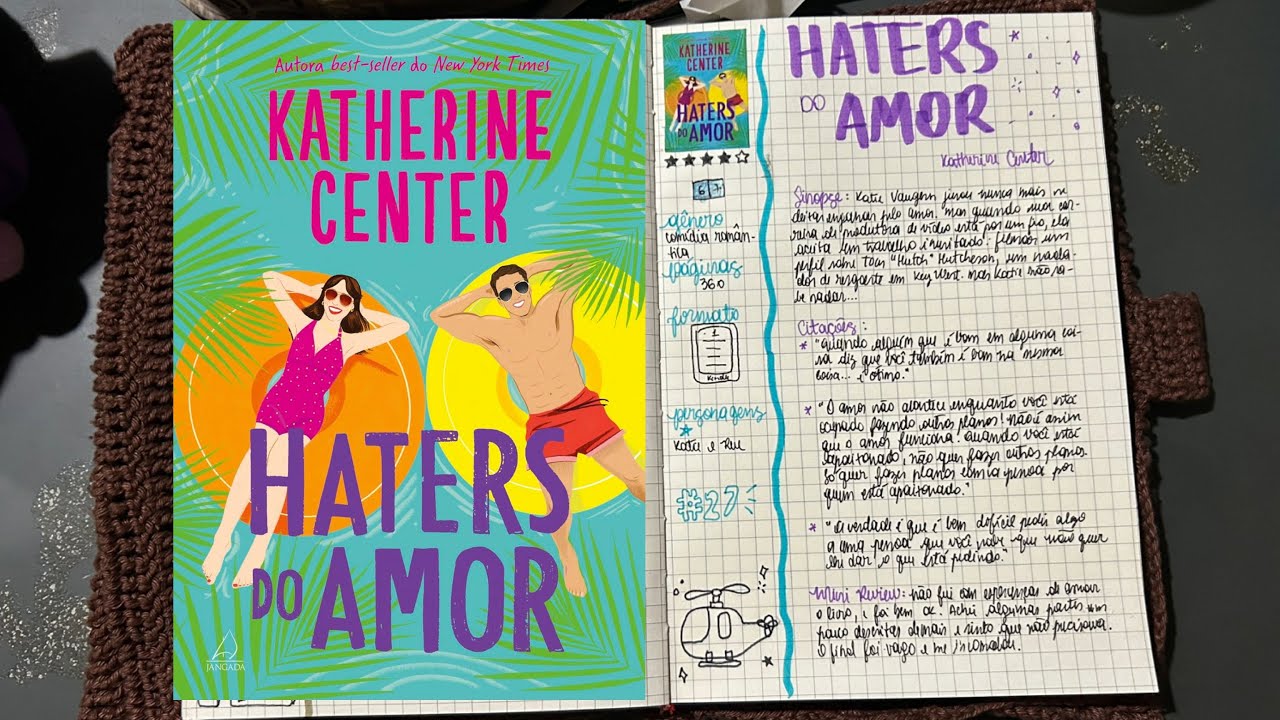 Autora best-seller do New York Times
KATHERINE
CENTER
HATERS
DO AMOR
JANGADA
KATHERINE
CENTER
HATERS
DO AMOR
6 7
gênero
comédia român-
tica
páginas
360
formato
1
Kindle
personagens
Katie e
#27
HATERS
DO AMOR
Katherine Center
Sinopse: Katie Vaughn jurou nunca mais se
deixar enganar pelo amor. mas quando sua car-
reira de produtora de vídeo está por um fio, ela
aceita um trabalho inusitado: filmar um
perfil sobre Tom "Hutch" Hutcheson, um nada-
dor de resgate em Key West. mas Katie não sa-
be nadar...
Citações:
* "Quando alguém que é bom em alguma coi-
sa diz que você também é bom na mesma
coisa... é ótimo."
* "O amor não acontece enquanto você está
ocupado fazendo outros planos! não é assim
que o amor funciona! Quando você está
apaixonado, não quer fazer outros planos.
Só quer fazer planos com a pessoa por
quem está apaixonado."
* "A verdade é que é bem difícil pedir algo
a uma pessoa que você sabe que não quer
lhe dar o que está pedindo."
Mini Review: não fui com esperanças de amar
o livro, e foi bem ok. Achei algumas partes um
pouco descritas demais e sinto que não precisava.
O final foi vago e me incomodou.